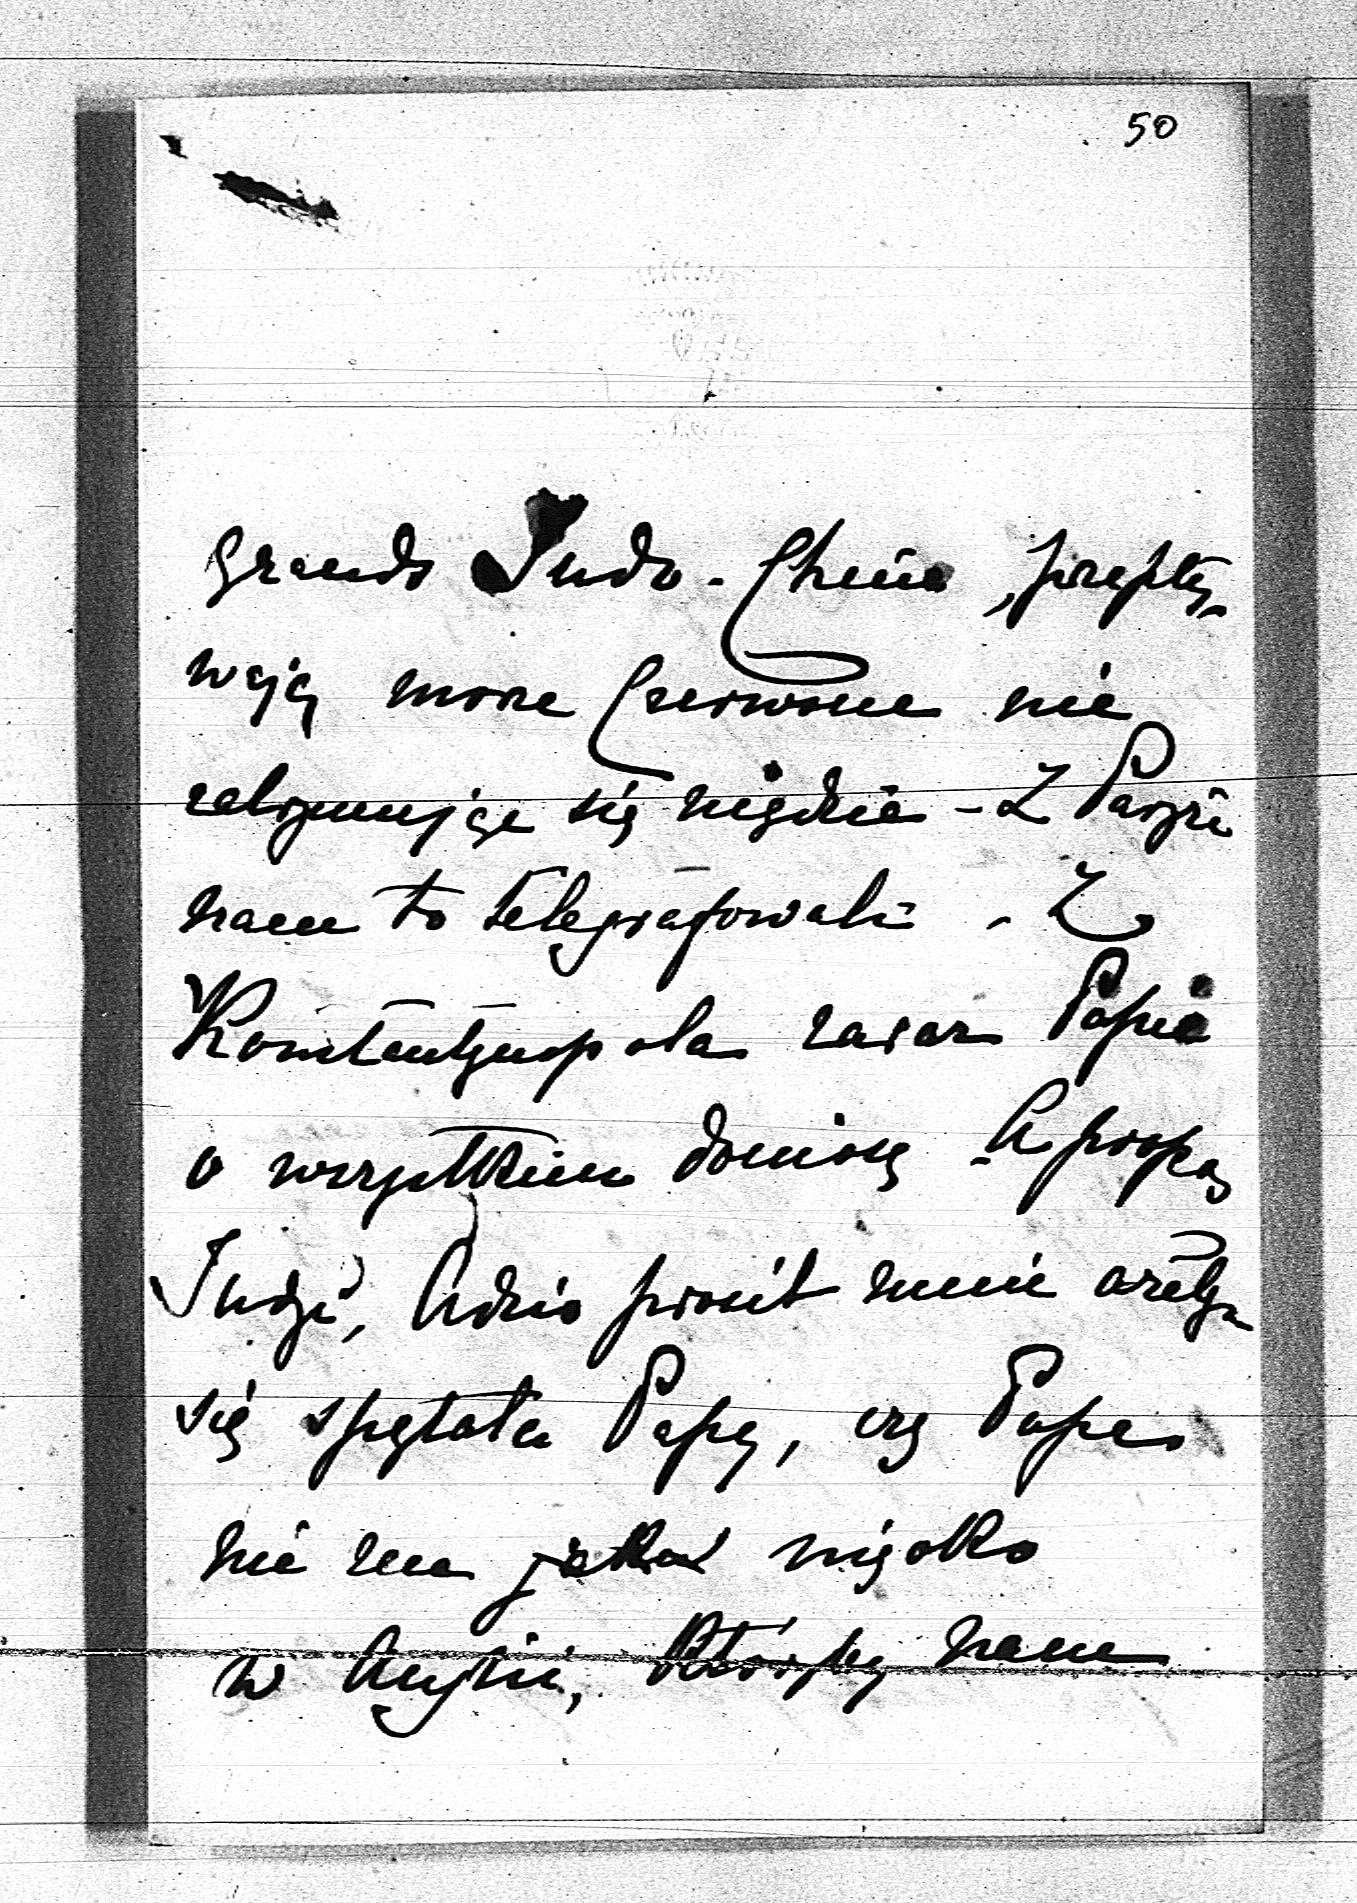 50
grands Indo-Chine, przepły-
wają morze Czerwone nie
zatrzymując się nigdzie - Z Paryża
nam to telegrafowali - Z
Konstantynopola zaraz Papie
o wszystkiem doniosę - A propos
Indyi, Adzio prosił mnie ażebym
się spytała Papy, czy Papa
nie ma jakiś
w Anglii, któryby nam